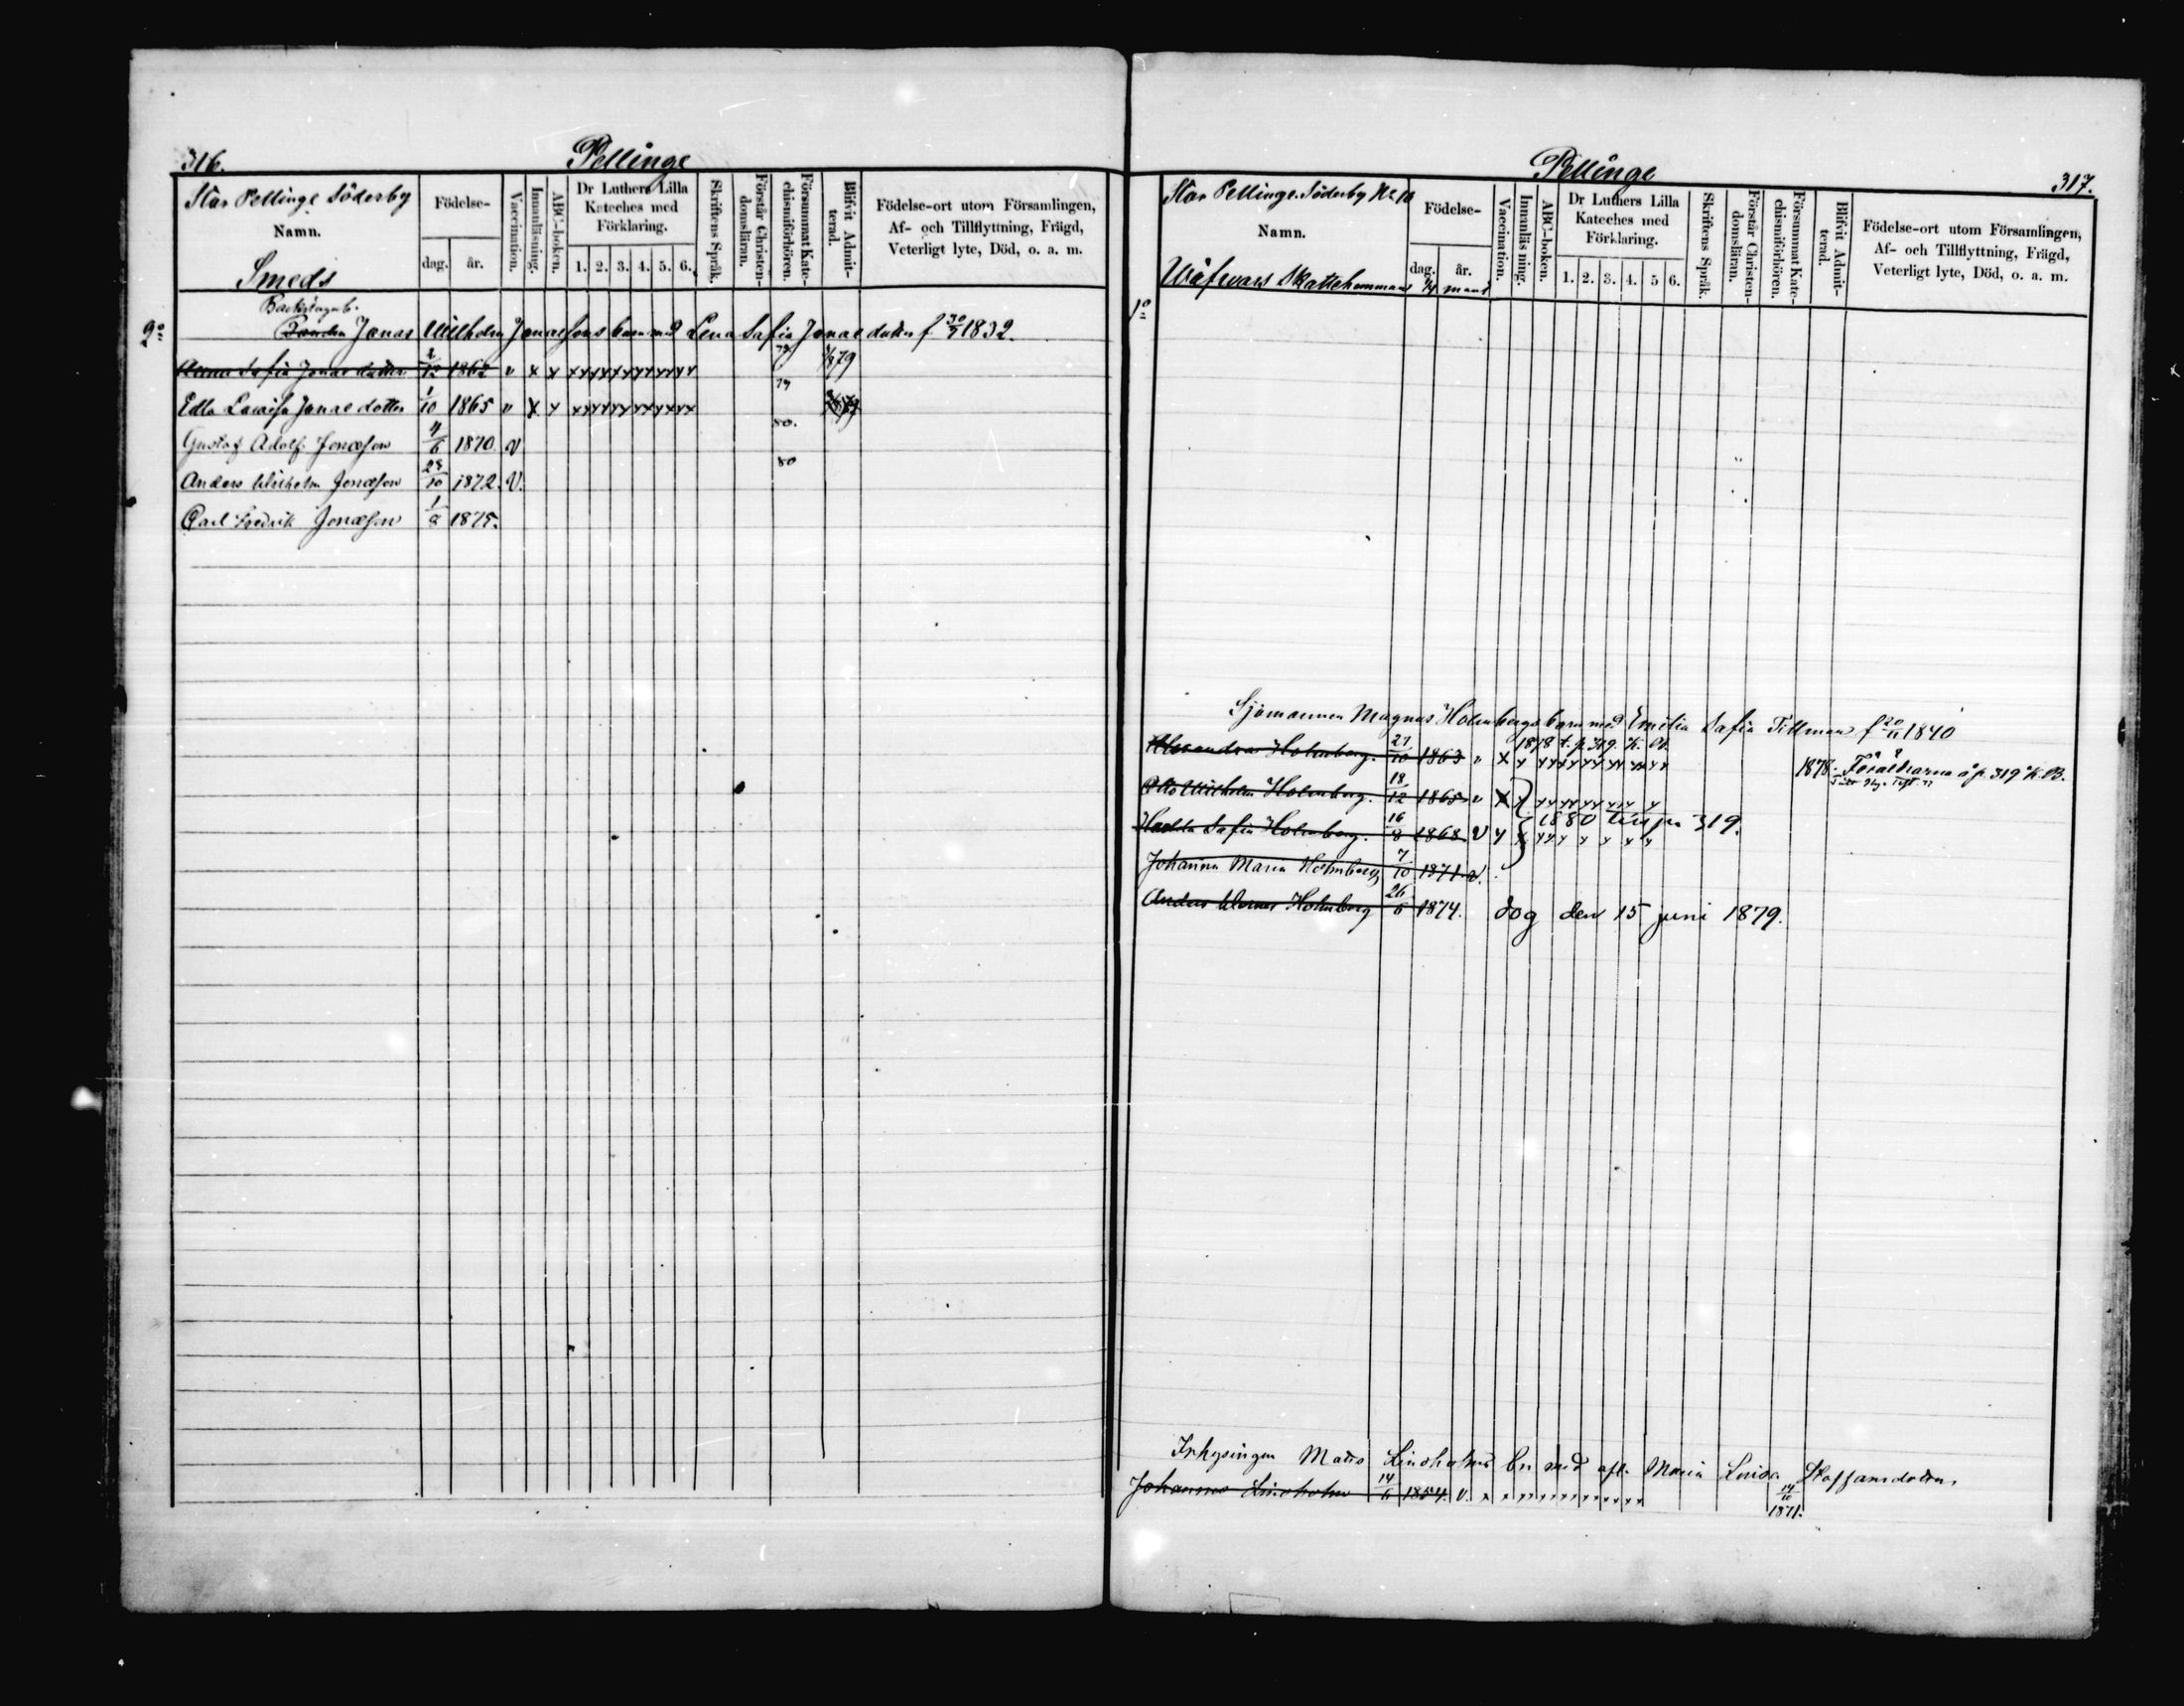 316.
Pellinge
Stor Pellinge Söderby
Namn.
Smeds
Födelse-
dag. år.
Vaccination.
Innanläsning.
ABC-boken.
Dr Luthers Lilla
Kateches med
Förklaring.
1. 2. 3. 4. 5. 6.
Skriftens Språk.
Förstår Christen-
domsläran.
Försummat Kate-
chismiförhören.
Blifvit Admit-
terad.
Födelse-ort utom Församlingen,
Af- och Tillflyttning, Frägd,
Veterligt lyte, Död, o. a. m.
2o
Bonden Jonas Wilhelm Jonassons barn med Lena Sofia Jonasdotter f 1832.
Anna Sofia Jonasdotter 2/12 1862 v x x xxxxxxxxxxxx 79
Edla Lovisa Jonasdotter 1/10 1865 v x x xxxxxxxxxxxx 79
Gustaf Adolf Jonasson 4/6 1870. v 80.
Anders Wilhelm Jonasson 28/10 1872. v. 80
Carl Fredrik Jonasson 1/8 1875.
Pellinge
317.
Stor Pellinge Söderby No 10
Namn.
Skattehemman
Födelse-
dag. år.
Vaccination.
Innanläsning.
ABC-boken.
Dr Luthers Lilla
Kateches med
Förklaring.
1. 2. 3. 4. 5 6.
Skriftens Språk.
Förstår Christen-
domsläran.
Försummat Kate-
chismiförhören.
Blifvit Admit-
terad.
Födelse-ort utom Församlingen,
Af- och Tillflyttning, Frägd,
Veterligt lyte, Död, o. a. m.
1o
Sjömannen Magnus Holmbergs barn med Emilia Sofia Tillman f 20/11 1840
1878 t. p. 319. K. B.
Alexandra Holmberg. 27/10 1863 v x x 1878. Föräldrarna å p. 319 K. B.
Otto Wilhelm Holmberg. 18/12 1865 v x x
1880 till pag 319.
Hulda Sofia Holmberg. 16/8 1868 v x x
Johanna Maria Holmberg 7/10 1871 v.
Anders Werner Holmberg 26/6 1874. dog den 15 juni 1879.
Inhysingen Matts Lindholms bn med afl. Maria Lovisa Staffansdotter.
Johannes Lindholm 14/6 1854. v. x x x x x x x x x x x 14/10
1871.